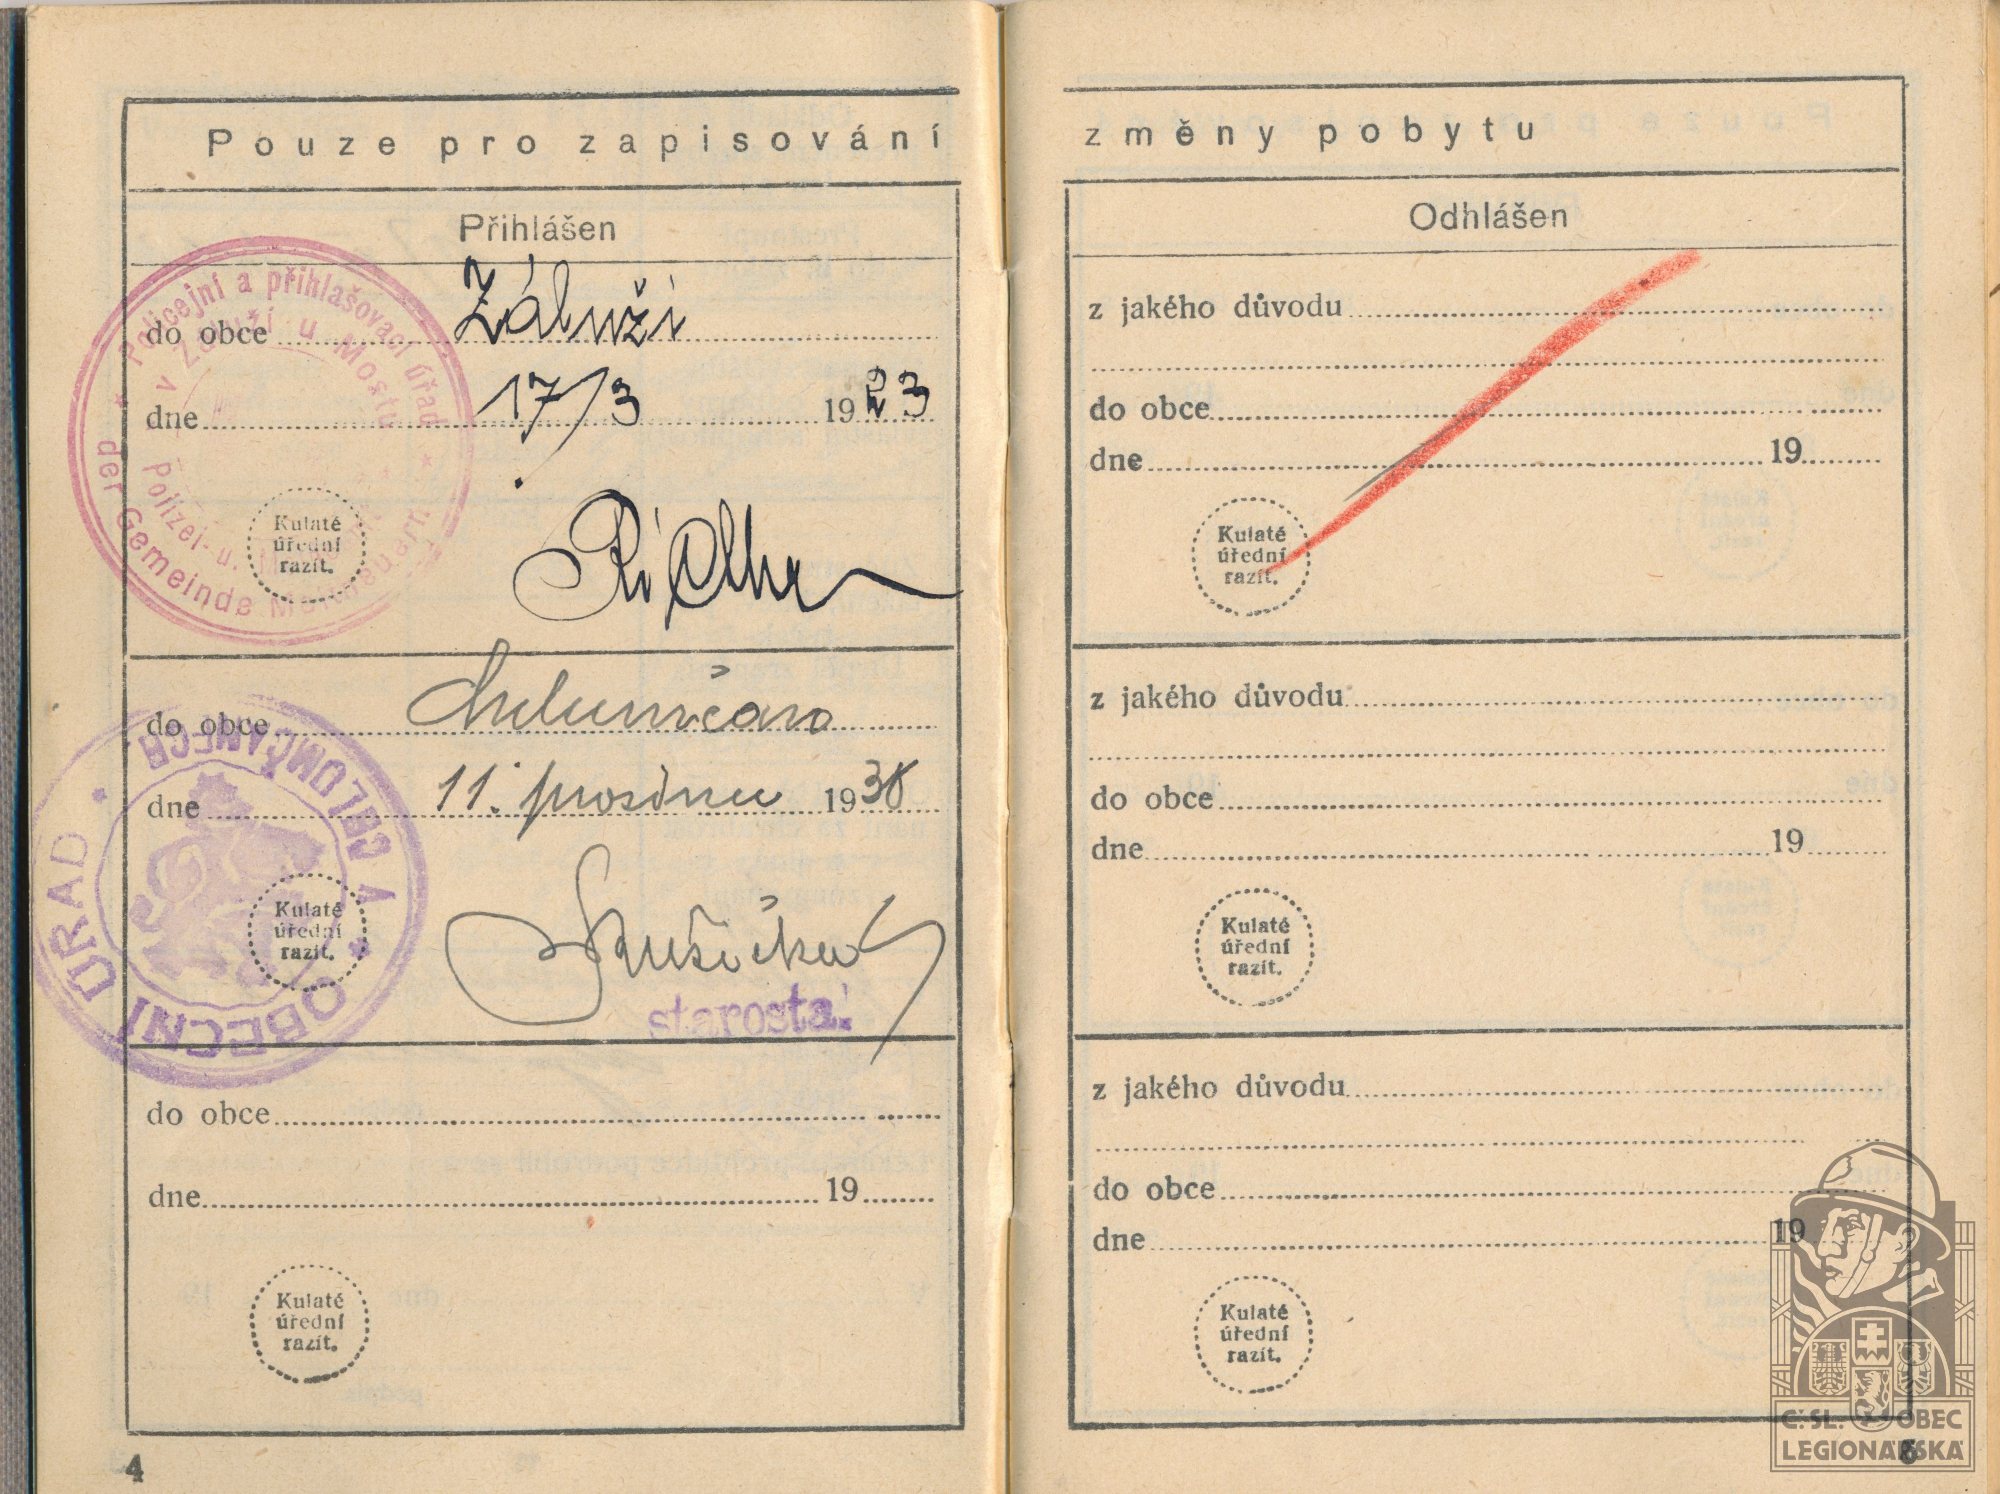 Pouze pro zapisování
Přihlášen
do obce Záluží
dne 17/3 1923
Policejní a přihlašovací úřad
v Záluží u Mostu
Polizei- u.
der Gemeinde
Kulaté
úřední
razít.
do obce
dne 11. prosince 1938
OBECNÍ ÚŘAD V CHLOMČANECH
Kulaté
úřední
razít.
Růžička
starosta:
do obce
dne 19
Kulaté
úřední
razít.
4
změny pobytu
Odhlášen
z jakého důvodu
do obce
dne 19
Kulaté
úřední
razít.
z jakého důvodu
do obce
dne 19
Kulaté
úřední
razít.
z jakého důvodu
do obce
dne 19
Kulaté
úřední
razít.
5
Č. SL. OBEC
LEGIONÁŘSKÁ